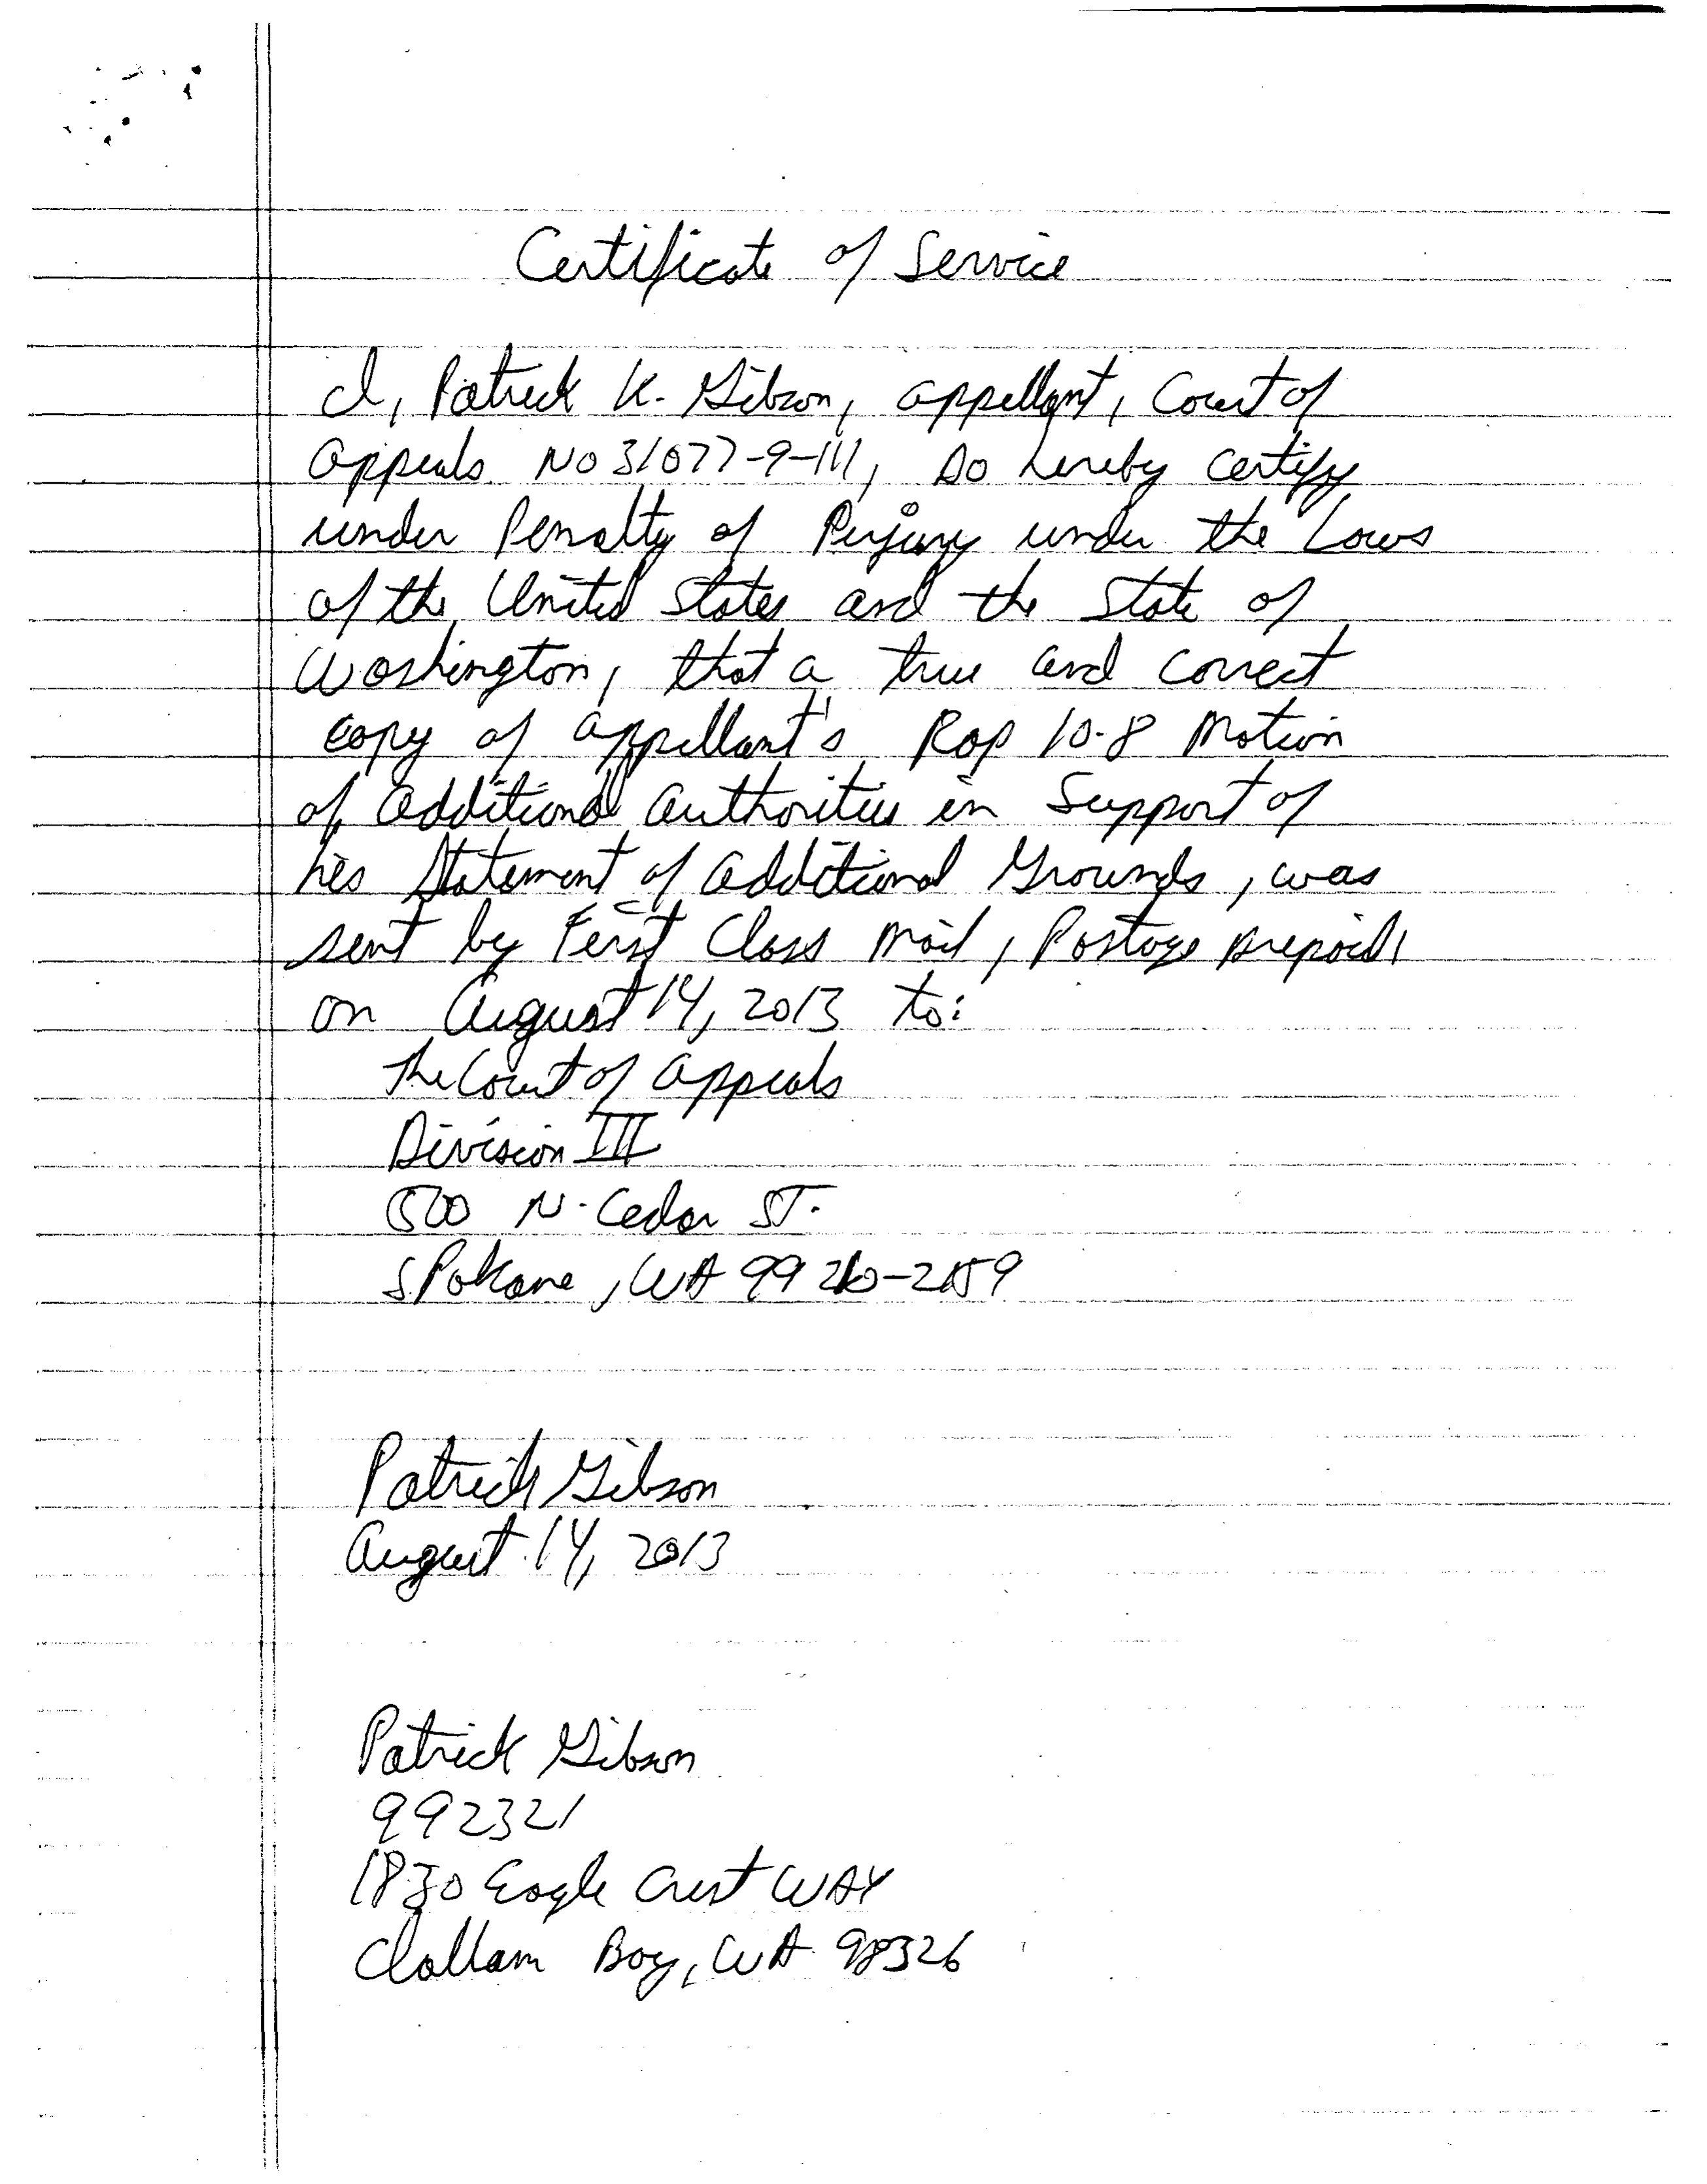 Certificate of Service
I, Patrick K. Gibson, appellant, Court of
Appeals No 31077-9-III, Do hereby certify
under Penalty of Perjury under the Laws
of the United States and the State of
Washington, that a true and correct
copy of appellant's Rap 10.8 Motion
of additional authorities in Support of
his Statement of additional Grounds, was
sent by First Class Mail, Postage prepaid,
on August 14, 2013 to:
The Court of Appeals
Division III
500 N. Cedar ST.
Spokane, WA 99210-2159
Patrick Gibson
August 14, 2013
Patrick Gibson
992321
1830 Eagle Crest WAY
Clallam Bay, WA 98326